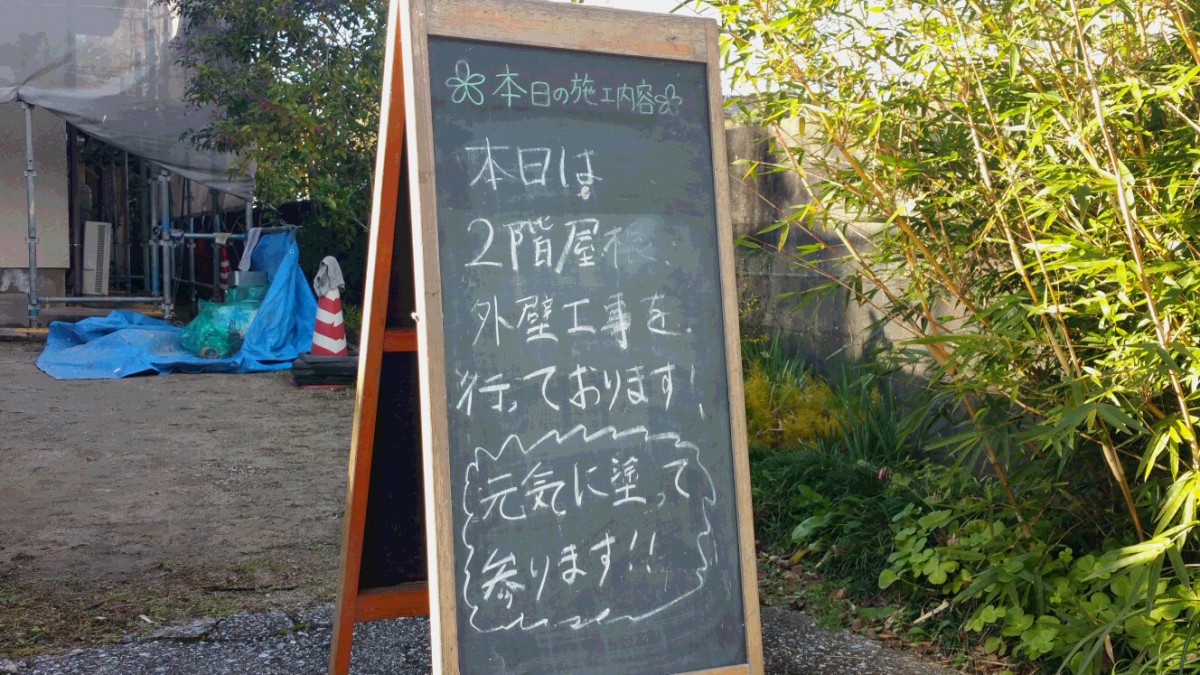 本日の施工内容
本日は
2階屋根、
外壁工事を
行っております!
元気に塗って
参ります!!